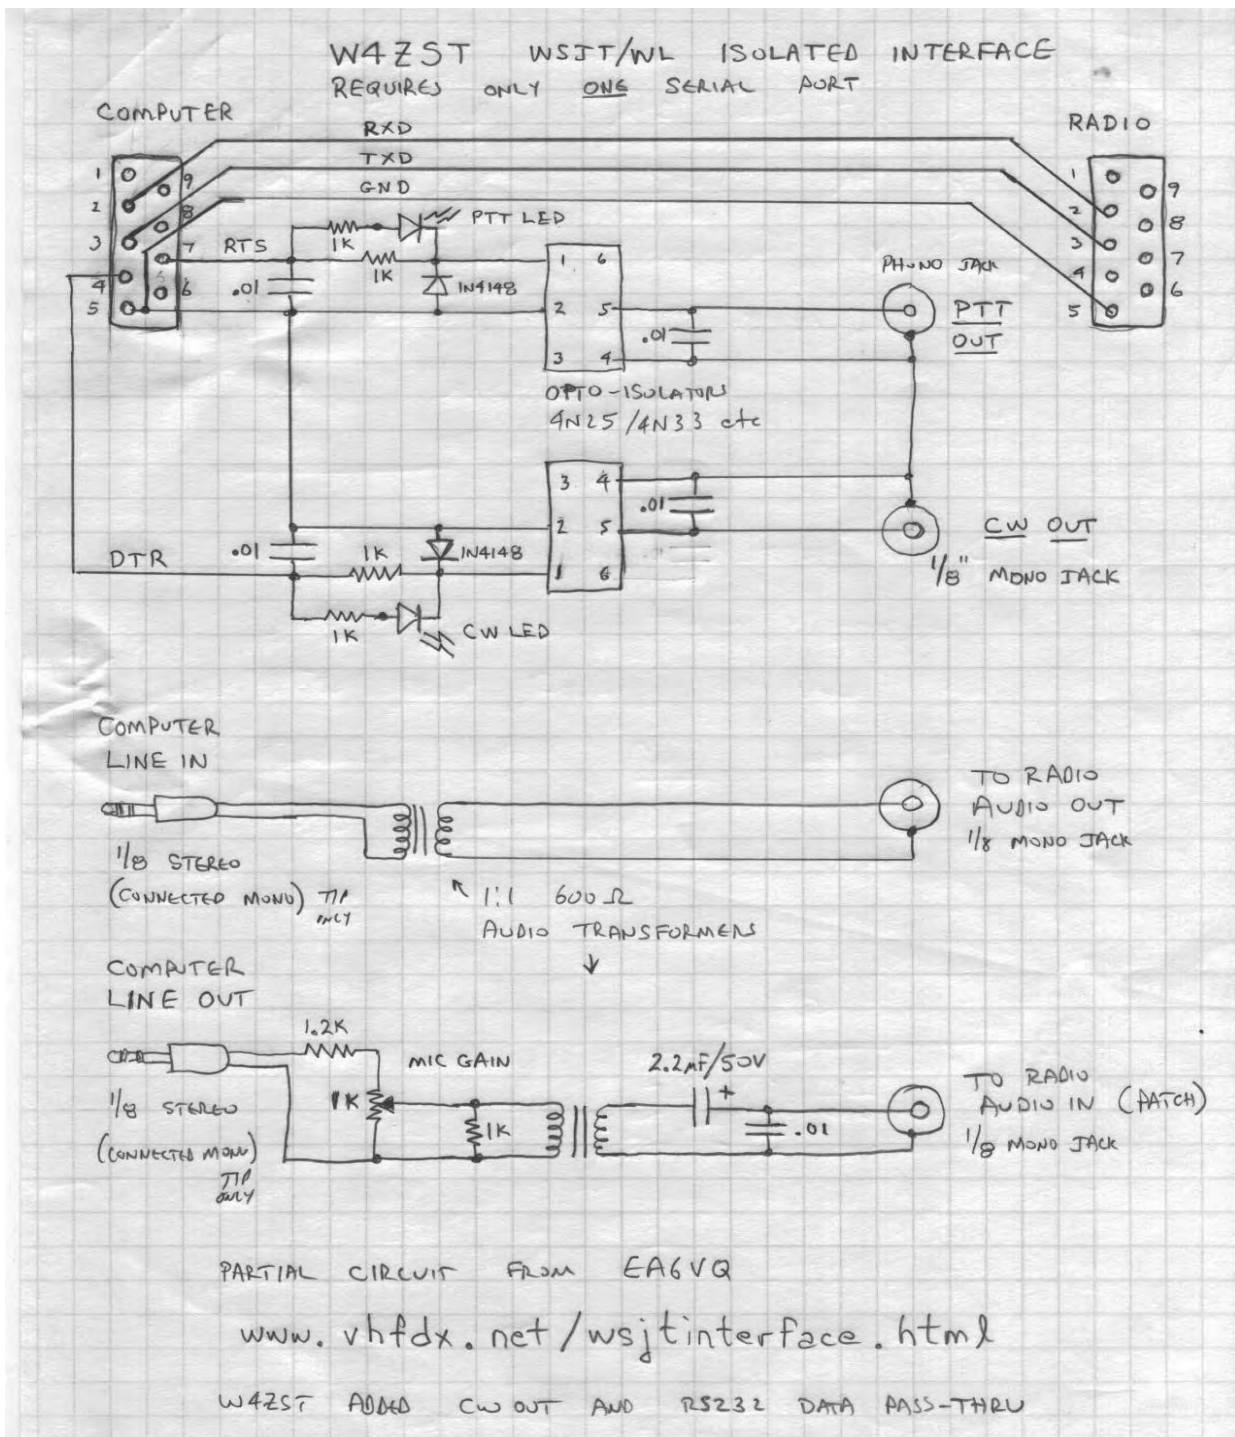 W4ZST WSJT/WL ISOLATED INTERFACE
REQUIRES ONLY ONE SERIAL PORT
COMPUTER
RADIO
RXD
TXD
GND
RTS
1
2
3
4
5
9
8
7
6
1
2
3
4
5
9
8
7
6
1K
PTT LED
1K
.01
1N4148
1 6
2 5
3 4
.01
PHONO JACK
PTT
OUT
OPTO-ISOLATORS
4N25/4N33 etc
3 4
2 5
1 6
.01
CW OUT
1/8" MONO JACK
DTR
.01
1K
1N4148
1K
CW LED
COMPUTER
LINE IN
1/8 STEREO
(CONNECTED MONO) TIP
ONLY
1:1 600Ω
AUDIO TRANSFORMERS
TO RADIO
AUDIO OUT
1/8 MONO JACK
COMPUTER
LINE OUT
1.2K
MIC GAIN
1K
1K
2.2µF/50V
+
.01
1/8 STEREO
(CONNECTED MONO)
TIP
ONLY
TO RADIO
AUDIO IN (PATCH)
1/8 MONO JACK
PARTIAL CIRCUIT FROM EA6VQ
www.vhfdx.net/wsjtinterface.html
W4ZST ADDED CW OUT AND RS232 DATA PASS-THRU